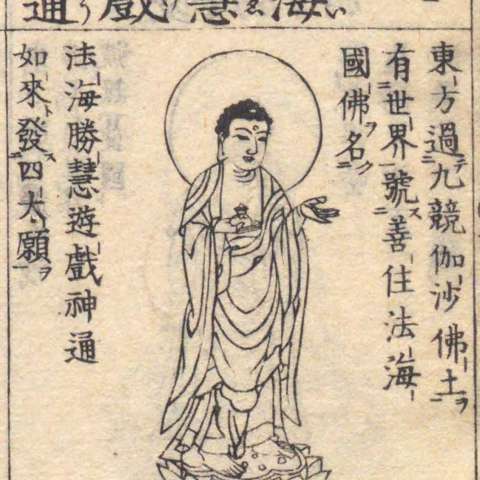 海慧戲通
東方過九競伽沙佛土
有世界號善住法海
國佛名
法海勝慧遊戲神通
如來發四大願